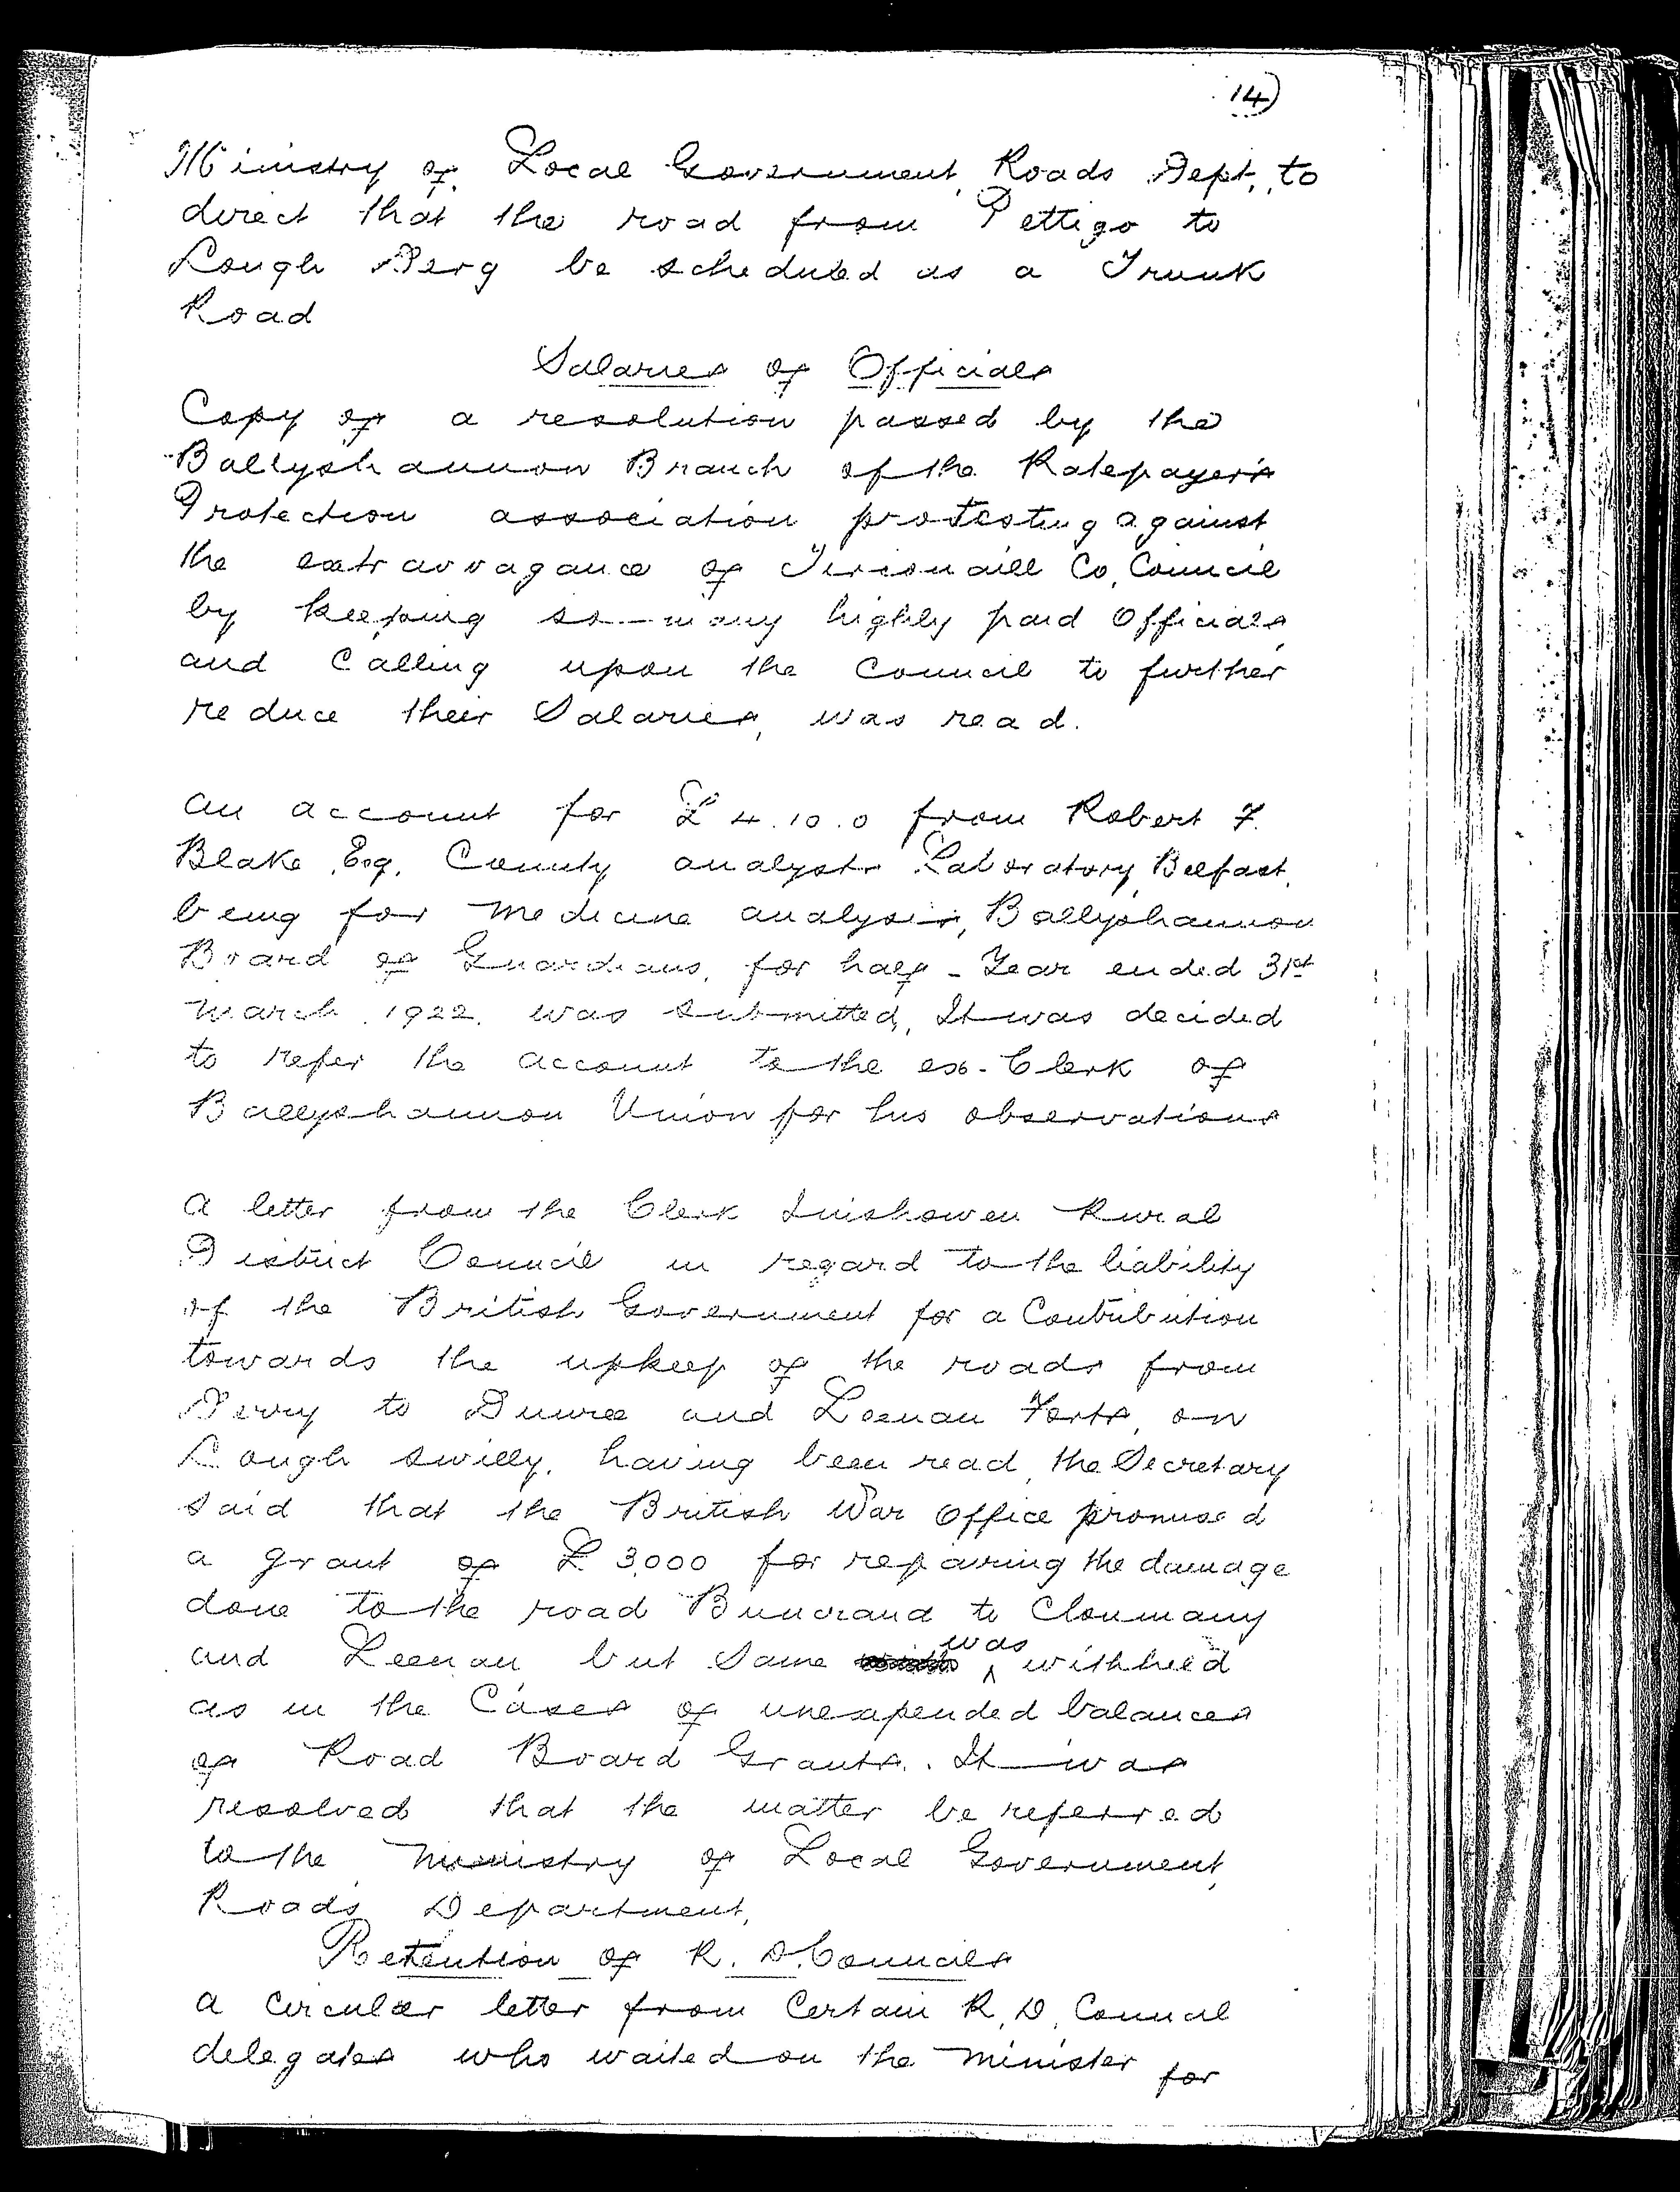 14)
Ministry of Local Government, Roads Dept, to
direct that the road from Pettigo to
Lough Derg be scheduled as a Trunk
Road
Salaries of Officials
Copy of a resolution passed by the
Ballyshannon Branch of the Ratepayer's
Protection association protesting against
the extravagance of Tirconaill Co. Council
by keeping so-many highly paid Officials,
and Calling upon the Council to further
reduce their Salaries, was read.
an account for £4.10.0 from Robert F.
Blake, Esq. County analyst Laboratory, Belfast,
being for medicine analysis, Ballyshannon
Board of Guardians, for half-Year ended 31st
March, 1922, was submitted, It was decided
to refer the account to the ex-Clerk of
Ballyshannon Union for his observations
a letter from the Clerk Inishowen Rural
District Council in regard to the liability
of the British Government for a Contribution
towards the upkeep of the roads from
Derry to Dunree and Leenan Forts, on
Lough Swilly, having been read, the Secretary
said that the British War Office promised
a grant of £3,000 for repairing the damage
done to the road Buncrana to Clonmany
and Leenan but same was withheld
as in the Cases of unexpended balances
of Road Board Grants. It was
resolved that the matter be referred
to the Ministry of Local Government,
Roads Department,
Retention of R. D. Councils
a Circular letter from Certain R. D. Council
delegates who waited on the Minister for